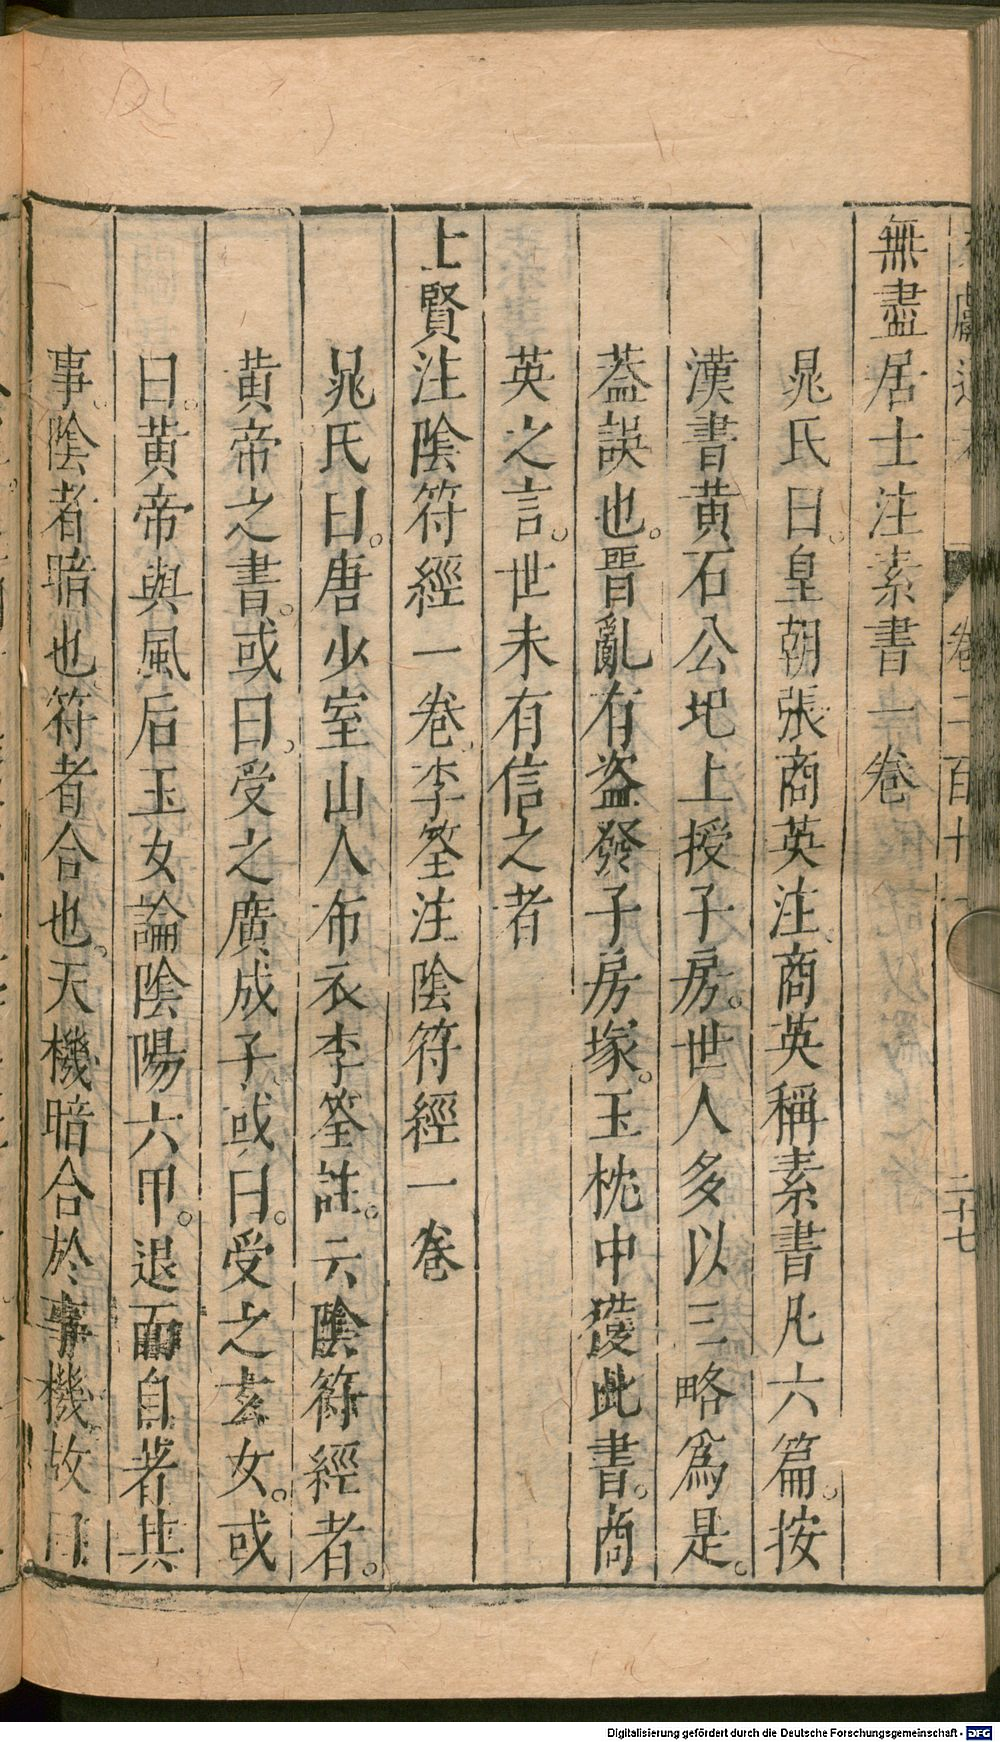 無盡居士注素書一卷
晁氏曰。皇朝張商英注。商英稱素書凡六篇。按
漢書黃石公圯上授子房。世人多以三略爲是。
葢誤也。晉亂有盜發子房塚。玉枕中獲此書。商
英之言。世未有信之者
上賢注陰符經一卷、李筌注陰符經一卷
晁氏曰。唐少室山人布衣李筌註。云陰符經者。
黃帝之書。或曰。受之廣成子、或曰。受之玄女。或
曰。黃帝與風后玉女論陰陽六甲。退而自著其
事。陰者暗也。符者合也。天機暗合於事機。故曰
卷二百十一
二十七
Digitalisierung gefördert durch die Deutsche Forschungsgemeinschaft - DFG